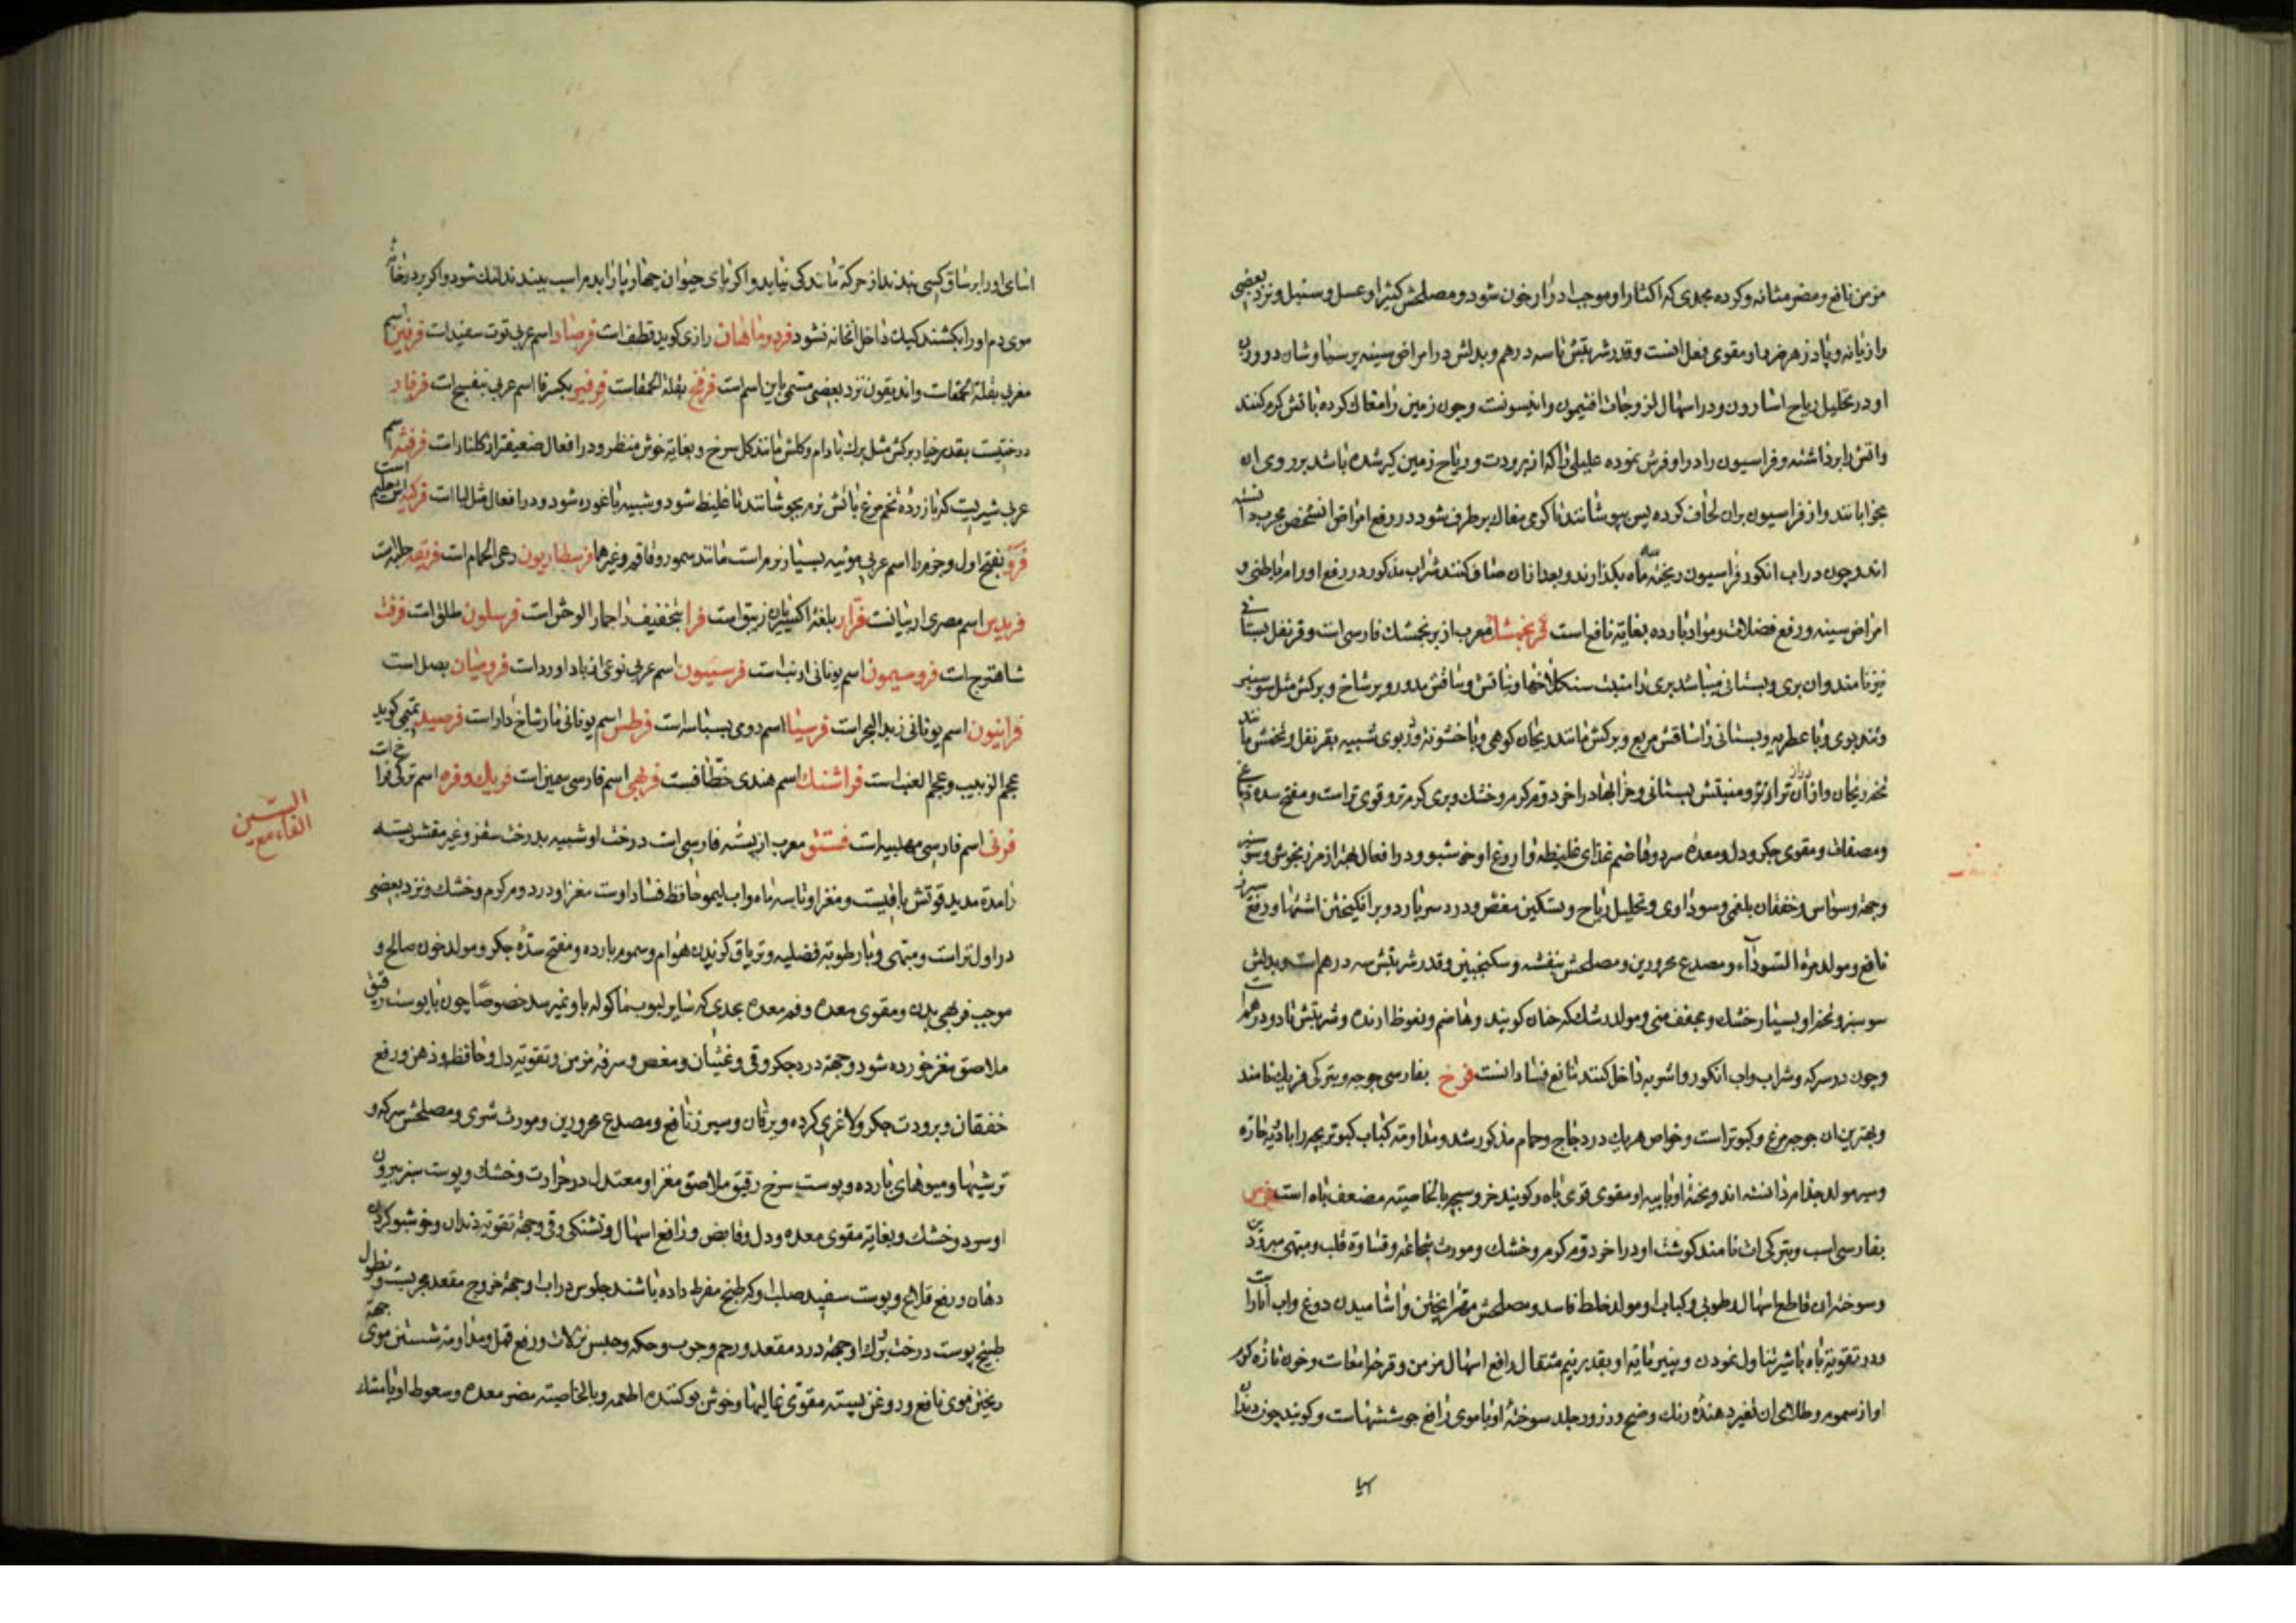 مزمن نافع و مضر مثانه و کرده بحدی که اکثار او موجب ادرار خون شود و مصلحش کثیرا و عسل و سنبل و نزد بعضی
رازیانه و پادزهر ضرر او مقوی فعل انست و قدر شربتش تا سه درهم و بدلش در امراض سینه پرسیاوشان و دو وزن
او در تحلیل ریاح اسارون و در اسهال لزوجات افتیمون و انیسونست و چون زمین را مغاک کرده باتش کرم کنند
واتش را برداشته و فراسیون را در او فرش نموده علیلی را که از برودت و ریاح زمین کیر شده باشد بر روی ان
بخوابانند و از فراسیون بران لحاف کرده پس بپوشانند تا کرمی مغاک برطرف شود در رفع امراض انشخص مجرب دانسته
اند و چون در اب انکور فراسیون ریخته سه ماه بکذارند و بعد ازان صاف کنند شراب مذکور در رفع اورام باطنی و
امراض سینه و رفع فضلات و مواد بارده بغایة نافع است فرنجمشک معرب از برنجمشک فارسی است و قرنفل بستانی
نیز نامند و ان بری و بستانی میباشد بری را منبت سنکلاخها و نباتش و ساقش مدور و پر شاخ و برکش مثل سوسنبر
و تند بوی و با عطریه و بستانی را ساقش مربع و برکش مانند ریحان کوهی و با خشونة و در بوی شبیه بقرنفل و تخمش مانند
تخم ریحان و ازان دراز تر و منبتش بستانی و خرابها در اخر دوم کرم و خشک و بری کرم تر و قوی تر است و مفتح سده دماغی
و مصفات و مقوی جکر و دل و معده سرد و هاضم غذای غلیظ و اروغ او خوشبو و در افعال بهتر از مرزنجوش و سوسنبر
و جهة وسواس و خفقان بلغمی و سوداوی و تحلیل ریاح و تسکین مغص و درد سر بارد و برانکیختن اشتها و رفع
نافع و مولد مرة السوداء و مصدع محرورین و مصلحش بنفشه و سکنجبین و قدر شربتش سه درهم است و بدلش
سوسنبر و تخم او بسیار خشک و مجفف منی و مولد رشک که خان کویند و هاضم و نعوظ ارنده و شربتش تا دو درهم است
و چون در سرکه و شراب و اب انکور و اشربه داخل کنند مانع فساد انست فرخ بفارسی جوجه و بترکی فریک نامند
و بهترین ان جوجه مرغ و کبوتر است و خواص هر یک در دجاج و حمام مذکور شد و مداومة کباب کبوتر بچه را با ادویه حاره
و سیر مولد جذام دانسته اند و پخته او با پیه او مقوی قوی باه و کویند خروسبچه بالخاصیته مضعف باه است فرس
بفارسی اسب و بترکی ات نامند کوشت او در اخر دوم کرم و خشک و مورث شجاعة و قساوة قلب و مبهی مبرودین
و سوخته ان قاطع اسهال رطوبی و کباب او مولد خلط فاسد و مصلحش مهرا پختن و اشامیدن دوغ و اب انار است
و در تقویة باه با شیر تناول نمودن و پنیر مایه او بقدر نیم مثقال رافع اسهال مزمن و قرحه امعات و خون تازه کرم
او از سموم و طلای ان تغیر دهنده رنک وضح و زرور جلد سوخته او با موی رافع جوششهاست و کویند چون دندان
اسیا
اسای او را بر ساق کسی بندند از حرکة ماندکی نیابد و اکر پای حیوان چهارپا را بدم اسب ببندند لنک شود و اکر بر در خانه
موی دم او را بکشند کیک داخل انخانه نشود فردوماهان رازی کوید قطف است فرصاد اسم عربی توت سفید است فرفین اسم
مغربی بقلة الحمقات و اندیقون نزد بعضی مسمی باین اسم است فرفخ بقلة الحمقات فرفیر بکسر فا اسم عربی بنفسج است فرفار
درختیست بقدر خیار برکش مثل برک بادام و کلش مانند کل سرخ و بغایة خوش منظر و در افعال ضعیفتر از کلنار است فرفشه اسم
عربی شیریست که با زرده تخم مرغ باتش نرم بجوشانند تا غلیظ شود و شبیه باغوره شود و در افعال مثل لبا است
فرو بفتح اول و جزم را اسم عربی موئینه بسیار نرم است مانند سمور و قاقم و غیرهما فرسطاریون رعی الحمام است فریقه حلبه است
فریدس اسم مصری اربیانست فرار بلغة اکسیریان زیبق است فرا بتخفیف را حمار الوحش است فرسلون طلق است
شاهترج است فروسیمون اسم یونانی ارنب است فرسیون اسم عربی نوعی از باداورد است فرومیان بصل است
فرانیون اسم یونانی زبد البحر است فرسیا اسم رومی بسباسه است فرطس اسم یونانی مار شاخدار است فرصید تمیمی کوید
عجم الزبیب و عجم العنب است فراشنک اسم هندی خطافست فربهی اسم فارسی سمین است فریک و فره اسم ترکی فراخ است
فرنی اسم فارسی مهلبیه است فستق معرب از پسته فارسی است درخت او شبیه بدرخت سقز و غیر مقشر پسته
را مدة مدید قوتش باقیست و مغز او تا سه ماه و اب لیمو حافظ فساد اوست مغز او در دوم کرم و خشک و نزد بعضی
در اول تر است و مبهی و با رطوبة فضلیه و تریاق کزیدن هوام و سموم بارده و مفتح سده جکر و مولد خون صالح و
موجب فربهی بدن و مقوی معده و فم معده بحدی که سایر لبوب ماکوله باو نمیرسد خصوصا چون با پوست رقیق
ملاصق مغز خورده شود و جهة درد جکر و قی و غثیان و مغص و سرفه مزمن و تقویة دل و حافظه و ذهن و رفع
خفقان و برودت جکر و لاغری کرده و یرقان و سپرز نافع و مصدع محرورین و مورث شری و مصلحش سرکه و
ترشیها و میوهای بارده و پوست سرخ رقیق ملاصق مغز او معتدل در حرارت و خشک و پوست سبز بیرون
او سرد و خشک و بغایة مقوی معده و دل و قابض و رافع اسهال و تشنکی و قی و جهة تقویة دندان و خوشبو کردن
دهان و رفع قلاع و پوست سفید صلب او که طبخ مفرط داده باشند جلوس در اب او جهة خروج مقعد مجربست و نطول
طبیخ پوست درخت و برک او جهة درد مقعد و رحم و جرب و حکه و حبس نزلات و رفع قمل و مداومة شستن موی جهة
ریختن موی نافع و روغن پسته مقوی غالیها و خوش بو کننده اطعمه و بالخاصیته مضر معده و سعوط او با مشک
السین
الفاء مع